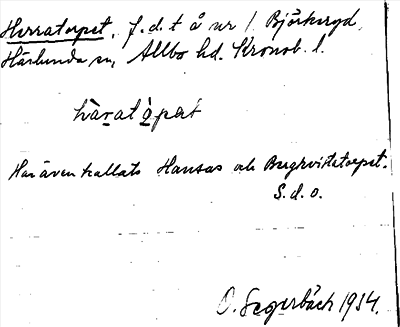 Herratorpet, f.d.t å nr 1 Björkeryd,
Härlunda sn, Allbo hd. Kronob. l.
hàrat ò̱pət
Har även kallats Hansas och Bergkvistatorpet.
S.d.o.
O. Segerbäck 1934.